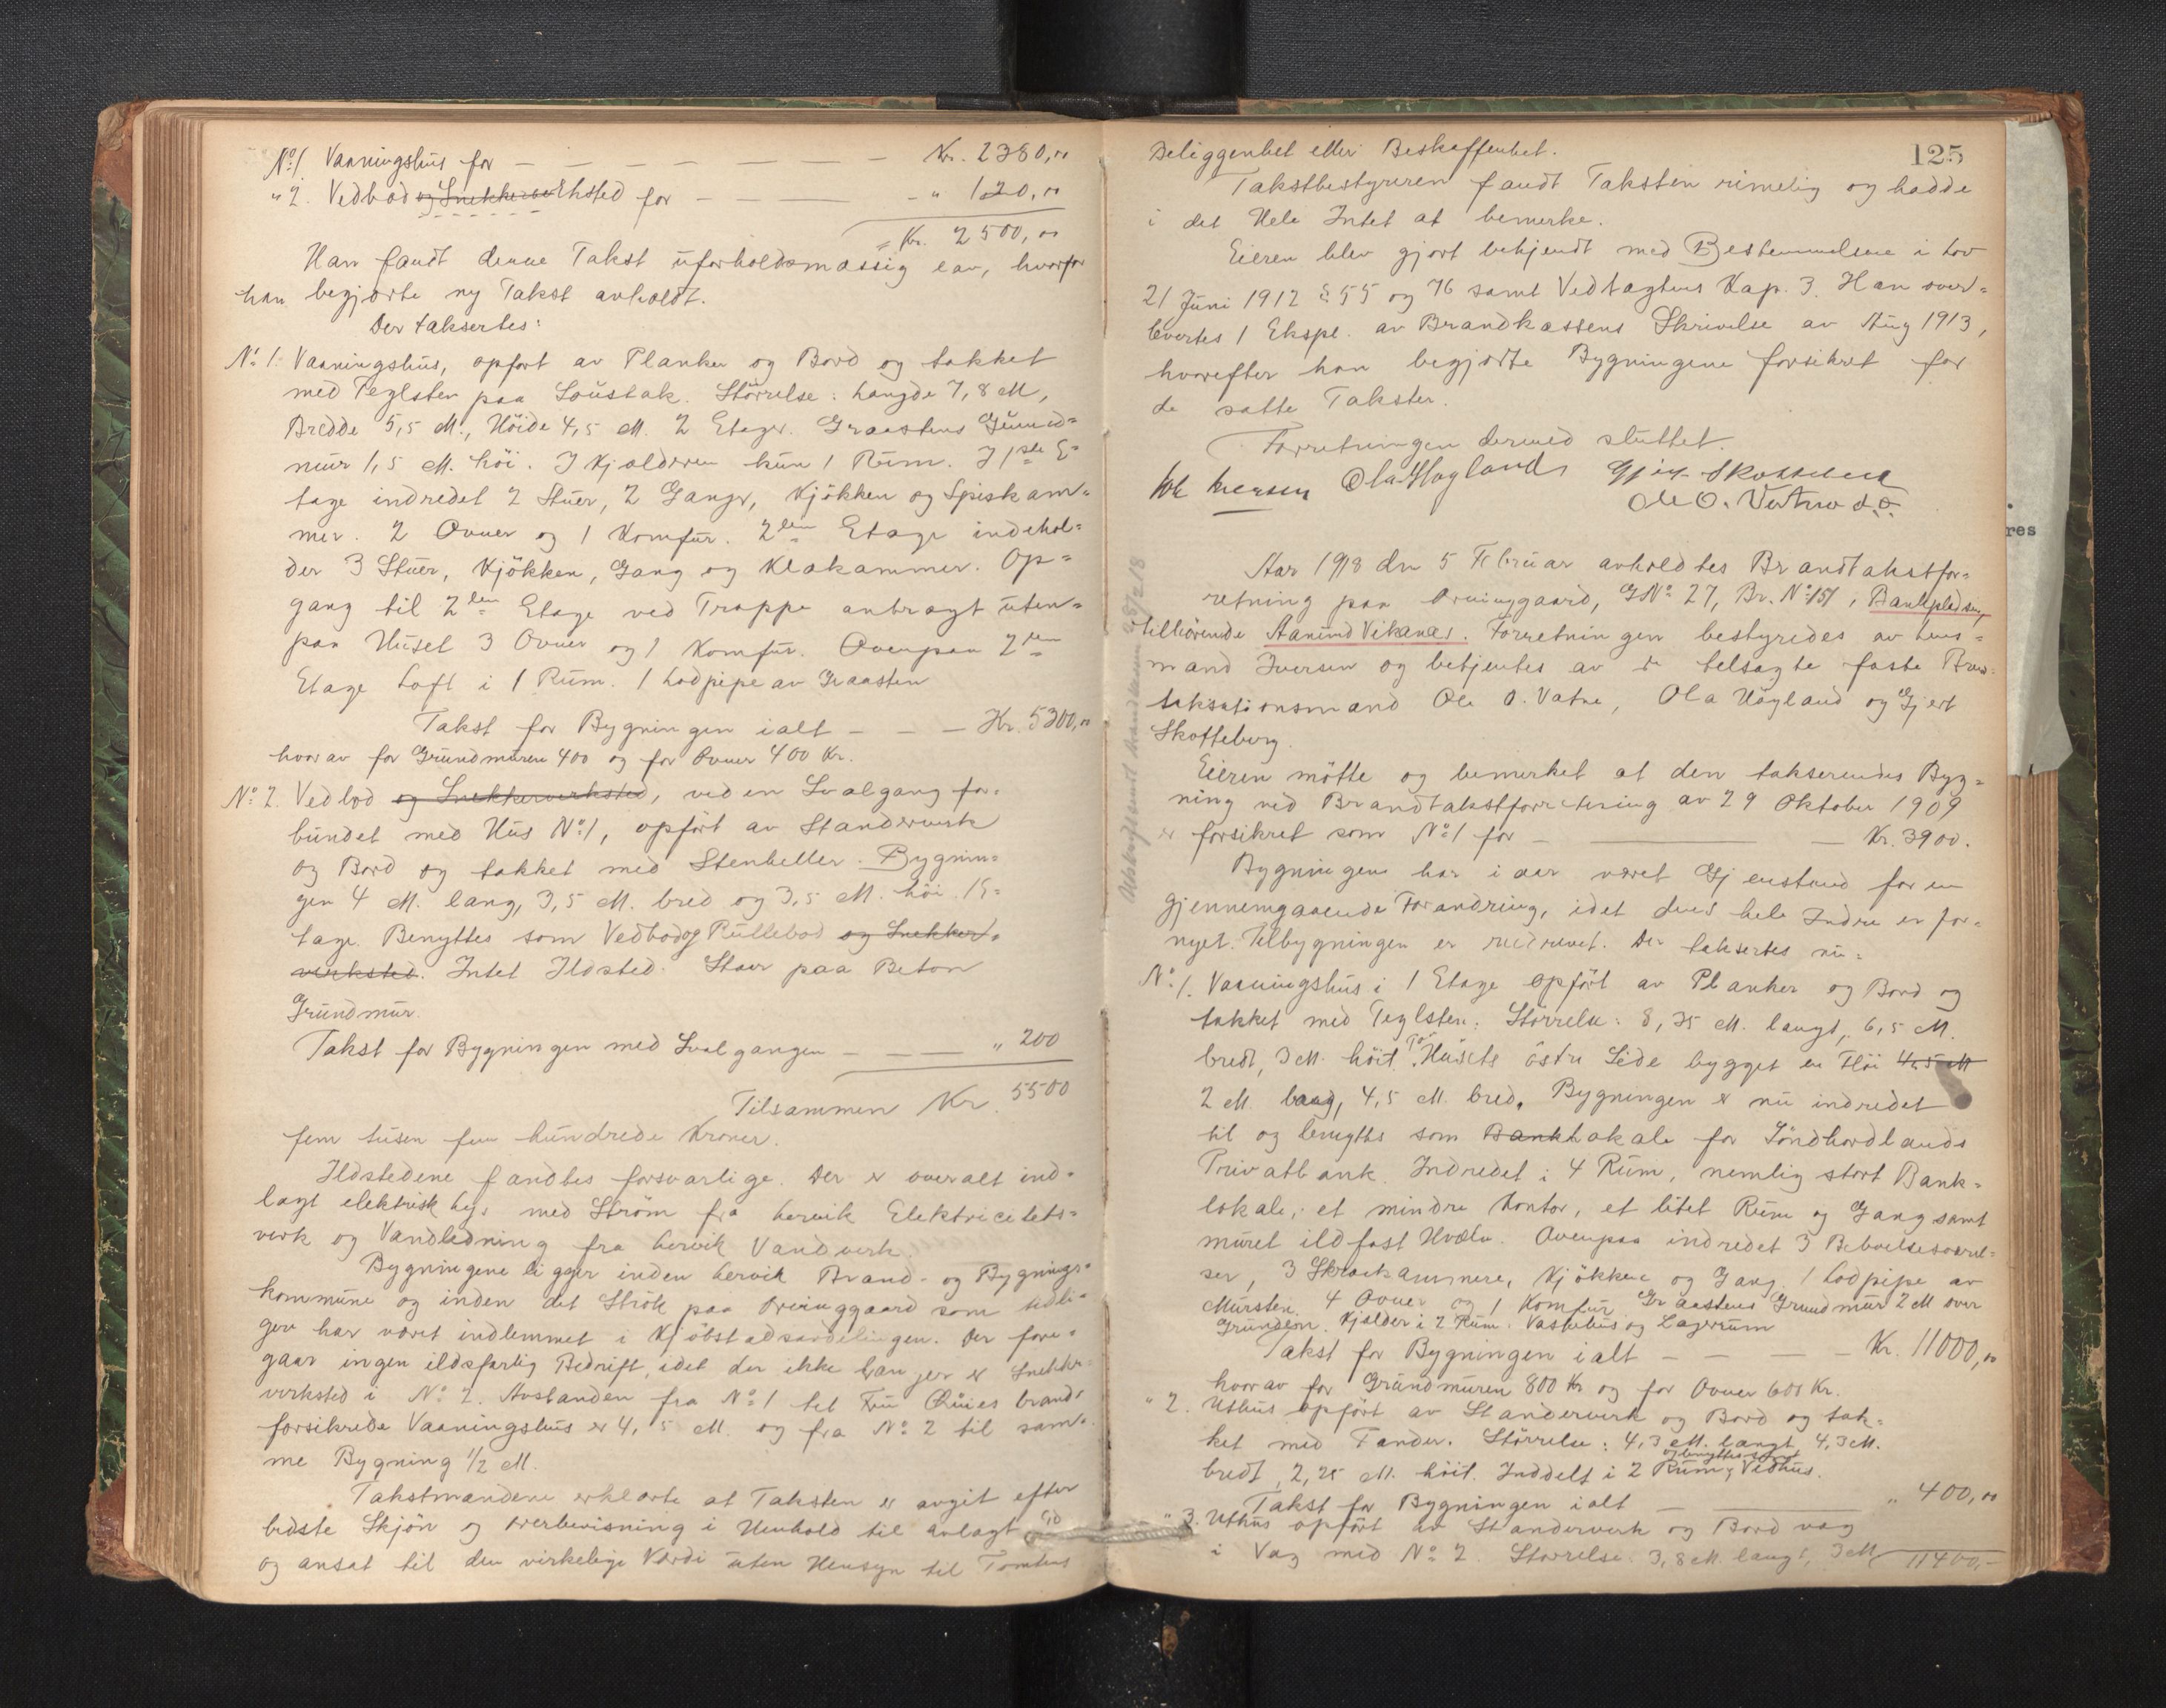 No 1. Vaaningshus for — — — — — — — Kr. 2380,00
" 2. Vedbod og Snekkerverksted for — — — — " 120,00
= Kr. 2500,00
Han fandt denne Takst uforholdsmæssig lav, hvorfor
han begjærte ny Takst avholdt.
Der taksertes:
No 1. Vaaningshus, opført av Planker og Bord og tækket
med Teglsten paa Soustak. Størrelse: Længde 7,8 M,
Bredde 5,5 M., Høide 4,5 M. 2 Etager. Graastens Grund=
mur 1,5 M. høi. I Kjælderen kun 1 Rum. I 1ste E=
tage indredet 2 Stuer, 2 Ganger, Kjøkken og Spiskam=
mer. 2 Ovner og 1 Komfur. 2den Etage indehol=
der 3 Stuer, Kjøkken, Gang og Klækammer. Op=
gang til 2den Etage ved Trappe anbragt uten=
paa Huset 3 Ovner og 1 Komfur. Ovenpaa 2den
Etage Loft i 1 Rum. 1 Lodpipe av Graasten
Takst for Bygningen ialt — — — Kr. 5300,00
hvorav for Grundmuren 400 og for Ovner 400 Kr.
No 2. Vedbod og Snekkerverksted, ved en Svalgang for=
bundet med Hus No 1, opført av Standerverk
og Bord og tækket med Stenheller. Bygnin=
gen 4 M. lang, 3,5 M. bred og 3,5 M. høi. 1 E=
tage. Benyttes som Vedbod og Rullebod og Snekker=
verksted. Intet Ildsted. Staar paa Beton
Grundmur.
Takst for Bygningen med Svalgangen — — — " 200
Tilsammen Kr. 5500
fem tusen fem hundrede Kroner.
Ildstedene fandtes forsvarlige. Der er overalt ind=
lagt elektrisk lys med Strøm fra Lervik Elektricitets=
verk og Vandledning fra Lervik Vandverk.
Bygningene ligger inden Lervik Brand- og Bygnings=
kommune og inden det Strøk paa Orninggaard som tidli=
gere har været indlemmet i Kjøbstadsavdelingen. Der fore=
gaar ingen ildsfarlig Bedrift, idet der ikke længer er Snekker=
verksted i No 2. Avstanden fra No 1 til Fru Øines brand=
forsikrede Vaaningshus er 4,5 M. og fra No 2 til sam=
me Bygning 1/2 M.
Takstmændene erklærte at Taksten er avgit efter
bedste Skjøn og Overbevisning i Henhold til avlagt Ed
og ansat til den virkelige Værdi uten Hensyn til Tomtens
125
Beliggenhet eller Beskaffenhet.
Takstbestyreren fandt Taksten rimelig og hadde
i det Hele Intet at bemerke.
Eieren blev gjort bekjendt med Bestemmelsene i Lov
21 Juni 1912 § 55 og 76 samt Vedtægtens Kap. 3. Han over=
levertes 1 Ekspl. av Brandkassens Skrivelse av Aug 1913,
hvorefter han begjærte Bygningene forsikret for
de satte Takster.
Forretningen dermed sluttet.
Iversen Ola Høgland Gjert Skotteberg
Ole O. Vatne
Aar 1918 den 5 Februar avholdtes Brandtakstfor=
retning paa Orninggaard, GNo 27, Br. No 151, Bankpladsen,
tilhørende Aamund Vikanes. Forretningen bestyredes av Lens=
mand Iversen og betjentes av de edsagte faste Bran=
taksationsmænd Ole O. Vatne, Ola Høgland og Gjert
Skotteberg.
Eieren møtte og bemerket at den takserendes Byg=
ning ved Brandtakstforretning av 29 Oktober 1909
er forsikret som No 1 for — — — Kr. 3900.
Bygningen har i aar været Gjenstand for en
gjennemgaaende Forandring, idet dens hele Indre er for=
nyet. Tilbygningen er nedrevet. Der taksertes nu:
No 1. Vaaningshus i 1 Etage opført av Planker og Bord og
tækket med Teglsten. Størrelse: 8,35 M. langt, 6,5 M.
bredt, 3 M. høit. Paa Husets østre Side bygget en Fløi 4,5 M
2 M. lang, 4,5 M. bred. Bygningen er nu indredet
til og benyttes som Banklokale for Søndhordlands
Privatbank. Indredet i 4 Rum, nemlig stort Bank=
lokale, et mindre Kontor, et litet Rum og Gang samt
muret ildfast Hvælv. Ovenpaa indredet 3 Beboelsesværel=
ser, 3 Skraakammere, Kjøkken og Gang. 1 Lodpipe av
Mursten. 4 Ovner og 1 Komfur. Graastens Grundmur 2 M over
Grunden. Kjælder i 2 Rum. Vaskehus og Lagerrum
Takst for Bygningen ialt — — — — Kr. 11000,00
hvorav for Grundmuren 800 Kr og for Ovner 600 Kr.
" 2. Uthus opført av Standerverk og Bord og tæk=
ket med Tønder. Størrelse: 4,3 M. langt, 4,3 M.
bredt, 2,25 M. høit. Inddelt i 2 Rum og benyttes som Vedhus.
Takst for Bygningen ialt — — " 400,00
" 3. Uthus opført av Standerverk og Bord væg
i Væg med No 2. Størrelse 3,8 M. langt, 3 M
11400,-
res